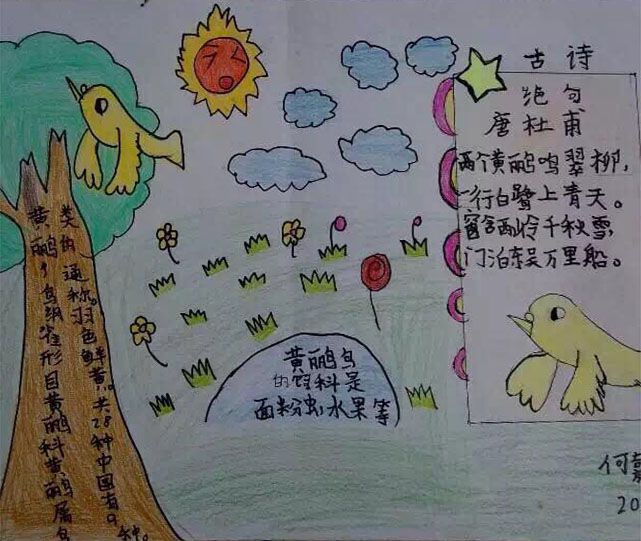 古诗
绝句
唐杜甫
两个黄鹂鸣翠柳,
一行白鹭上青天。
窗含西岭千秋雪,
门泊东吴万里船。
黄鹂,鸟纲雀形目黄鹂科黄鹂属鸟
类的通称。羽色鲜黄。共28种中国有9种。
黄鹂鸟
的饲料是
面粉虫水果等
何
20